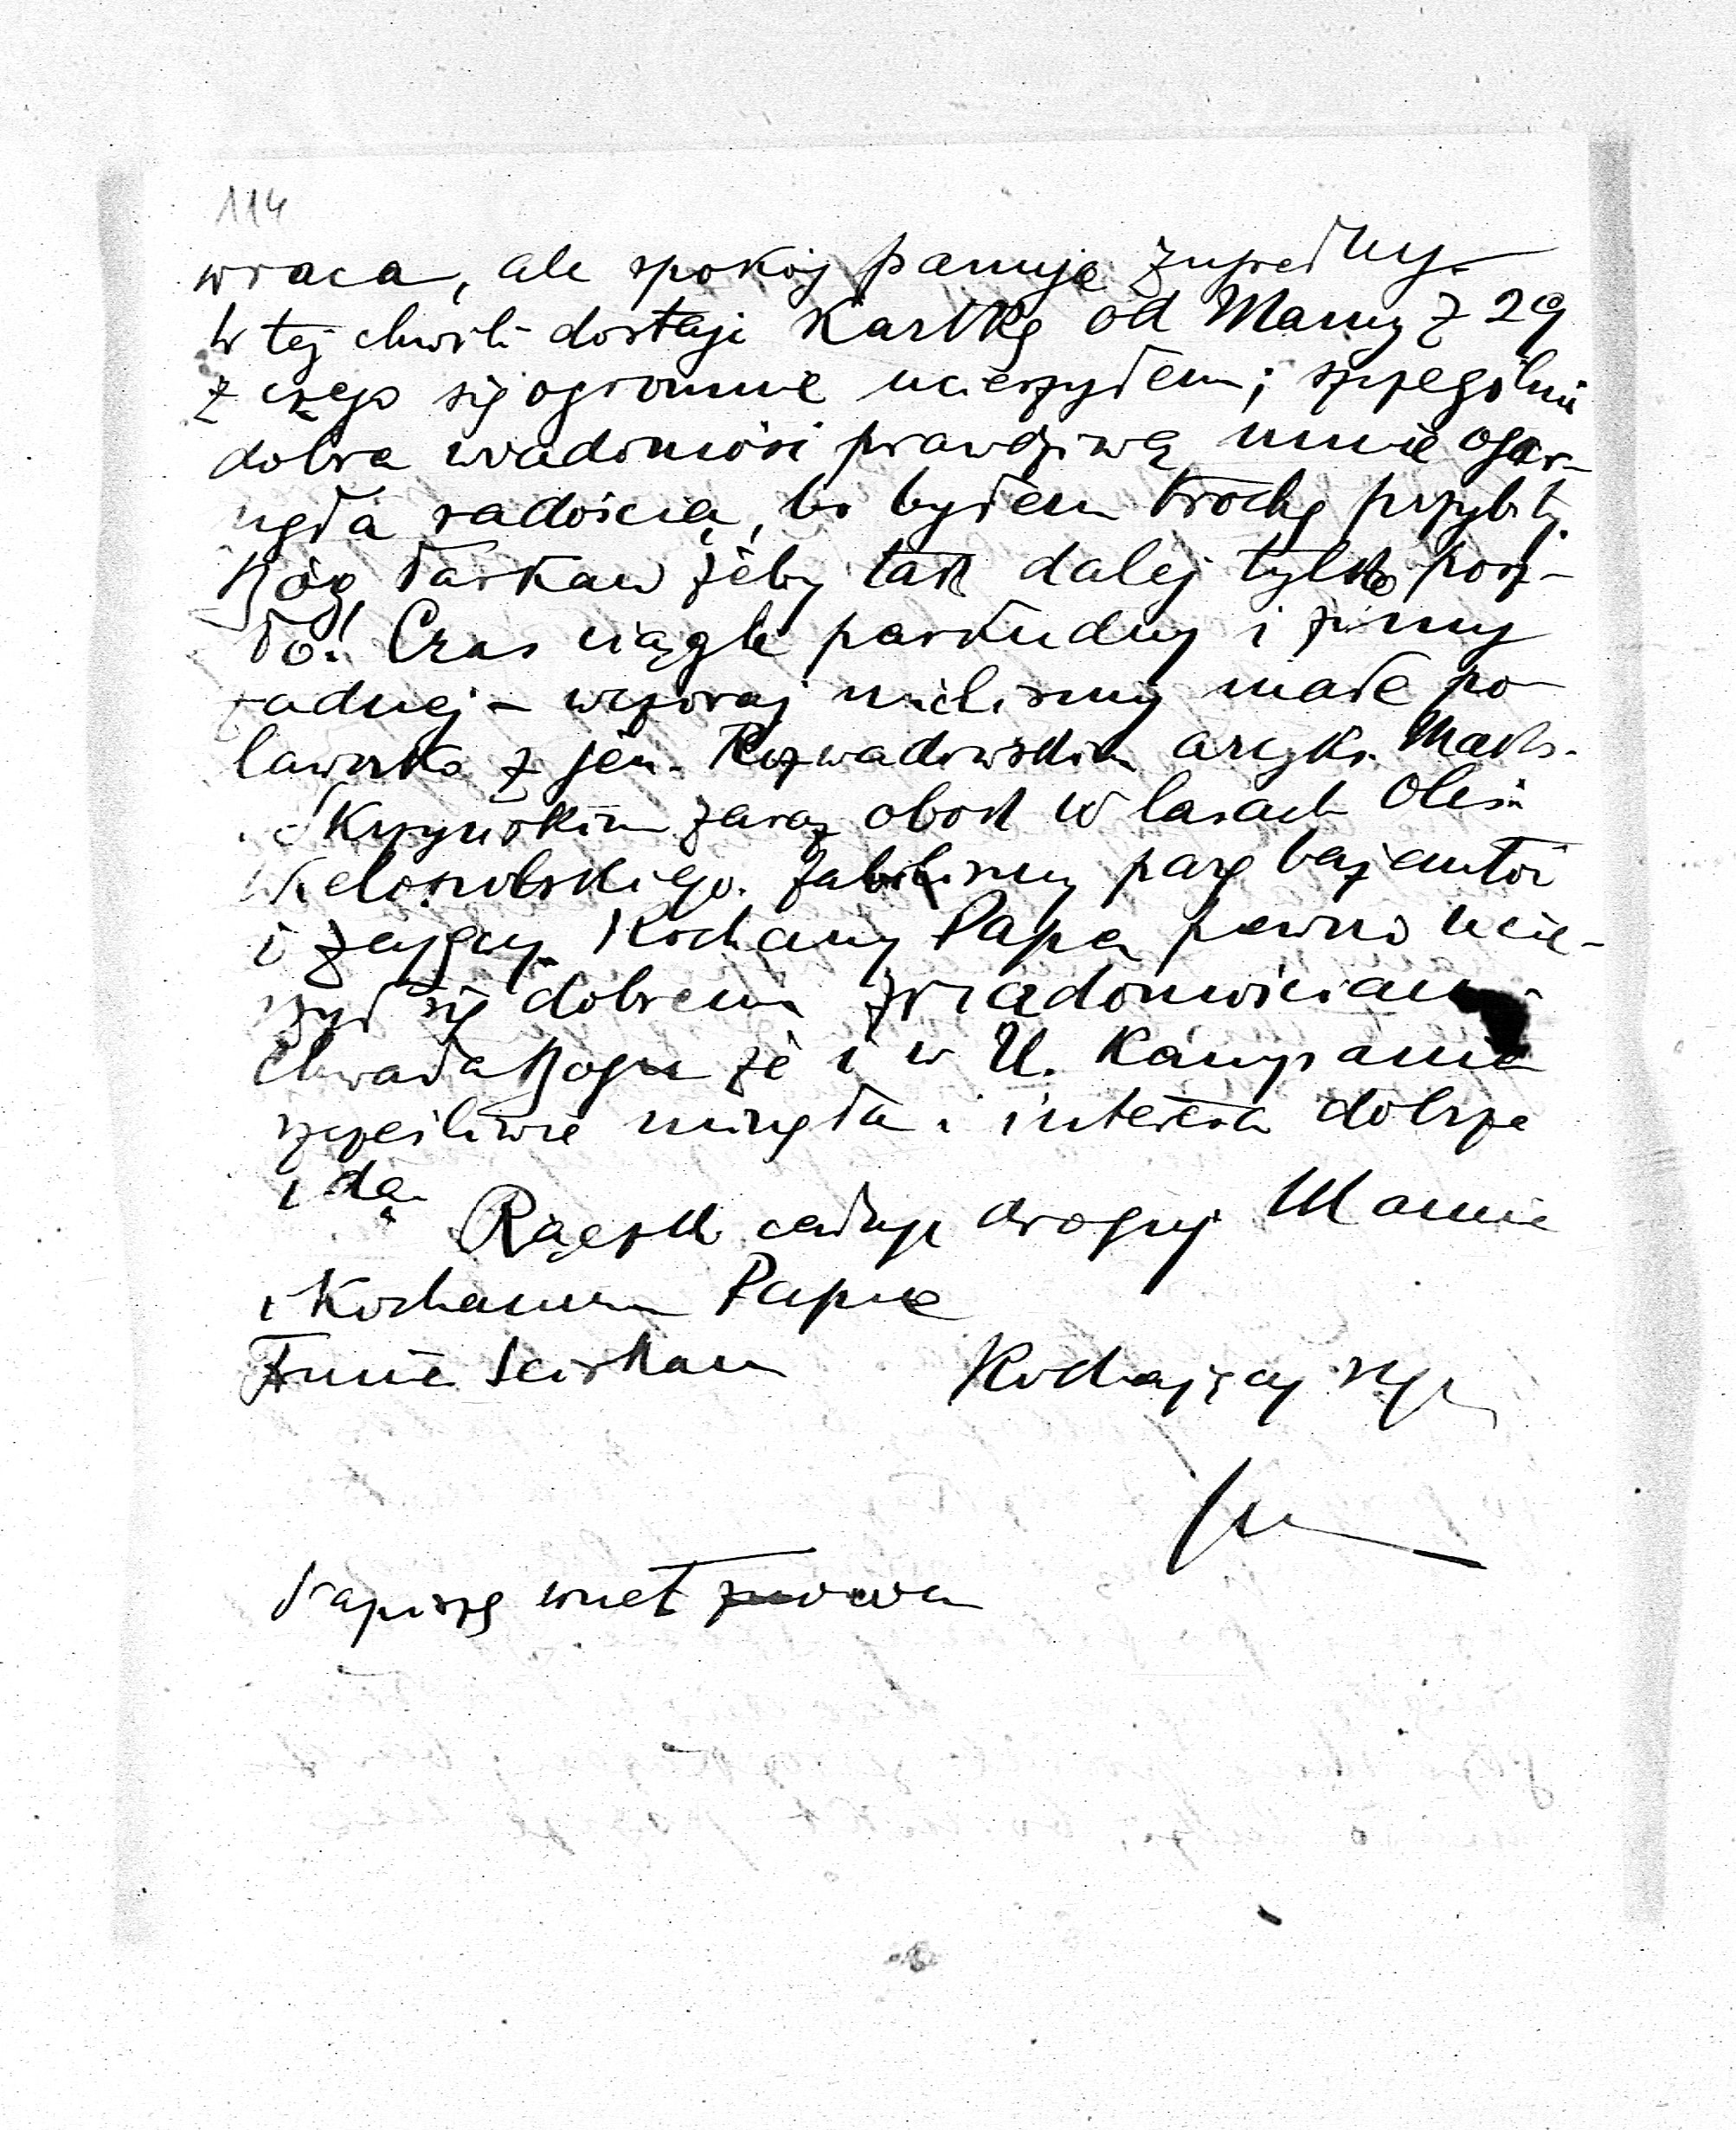 114
wraca, ale spokój panuje zupełny.
W tej chwili dostaję kartkę od Mamy z 29
z czego się ogromnie ucieszyłem; szczególnie
dobra wiadomość prawdziwą mnie ogar-
nęła radością, bo byłem trochę przybity.
Bóg łaskaw żeby tak dalej tylko posz-
ło! Czas ciągle paskudny i zimy
żadnej – wczoraj mieliśmy małe po-
lowanko z jen. Rozwadowskim arcyks. Maks.
i Skrzyńskim zaraz obok w lasach Olesia
Wielopolskiego. Zabiliśmy parę bażantów
i zajęcy. Kochany Papa pewno ucie-
szył się dobremi wiadomościami.
Chwała Bogu że i w U. kampania
szczęśliwie minęła i interesa dobrze
idą.
Rączki całuję drogiej Mamie
i Kochanemu Papie
ściskam
Kochający syn
Napiszę wnet znowu